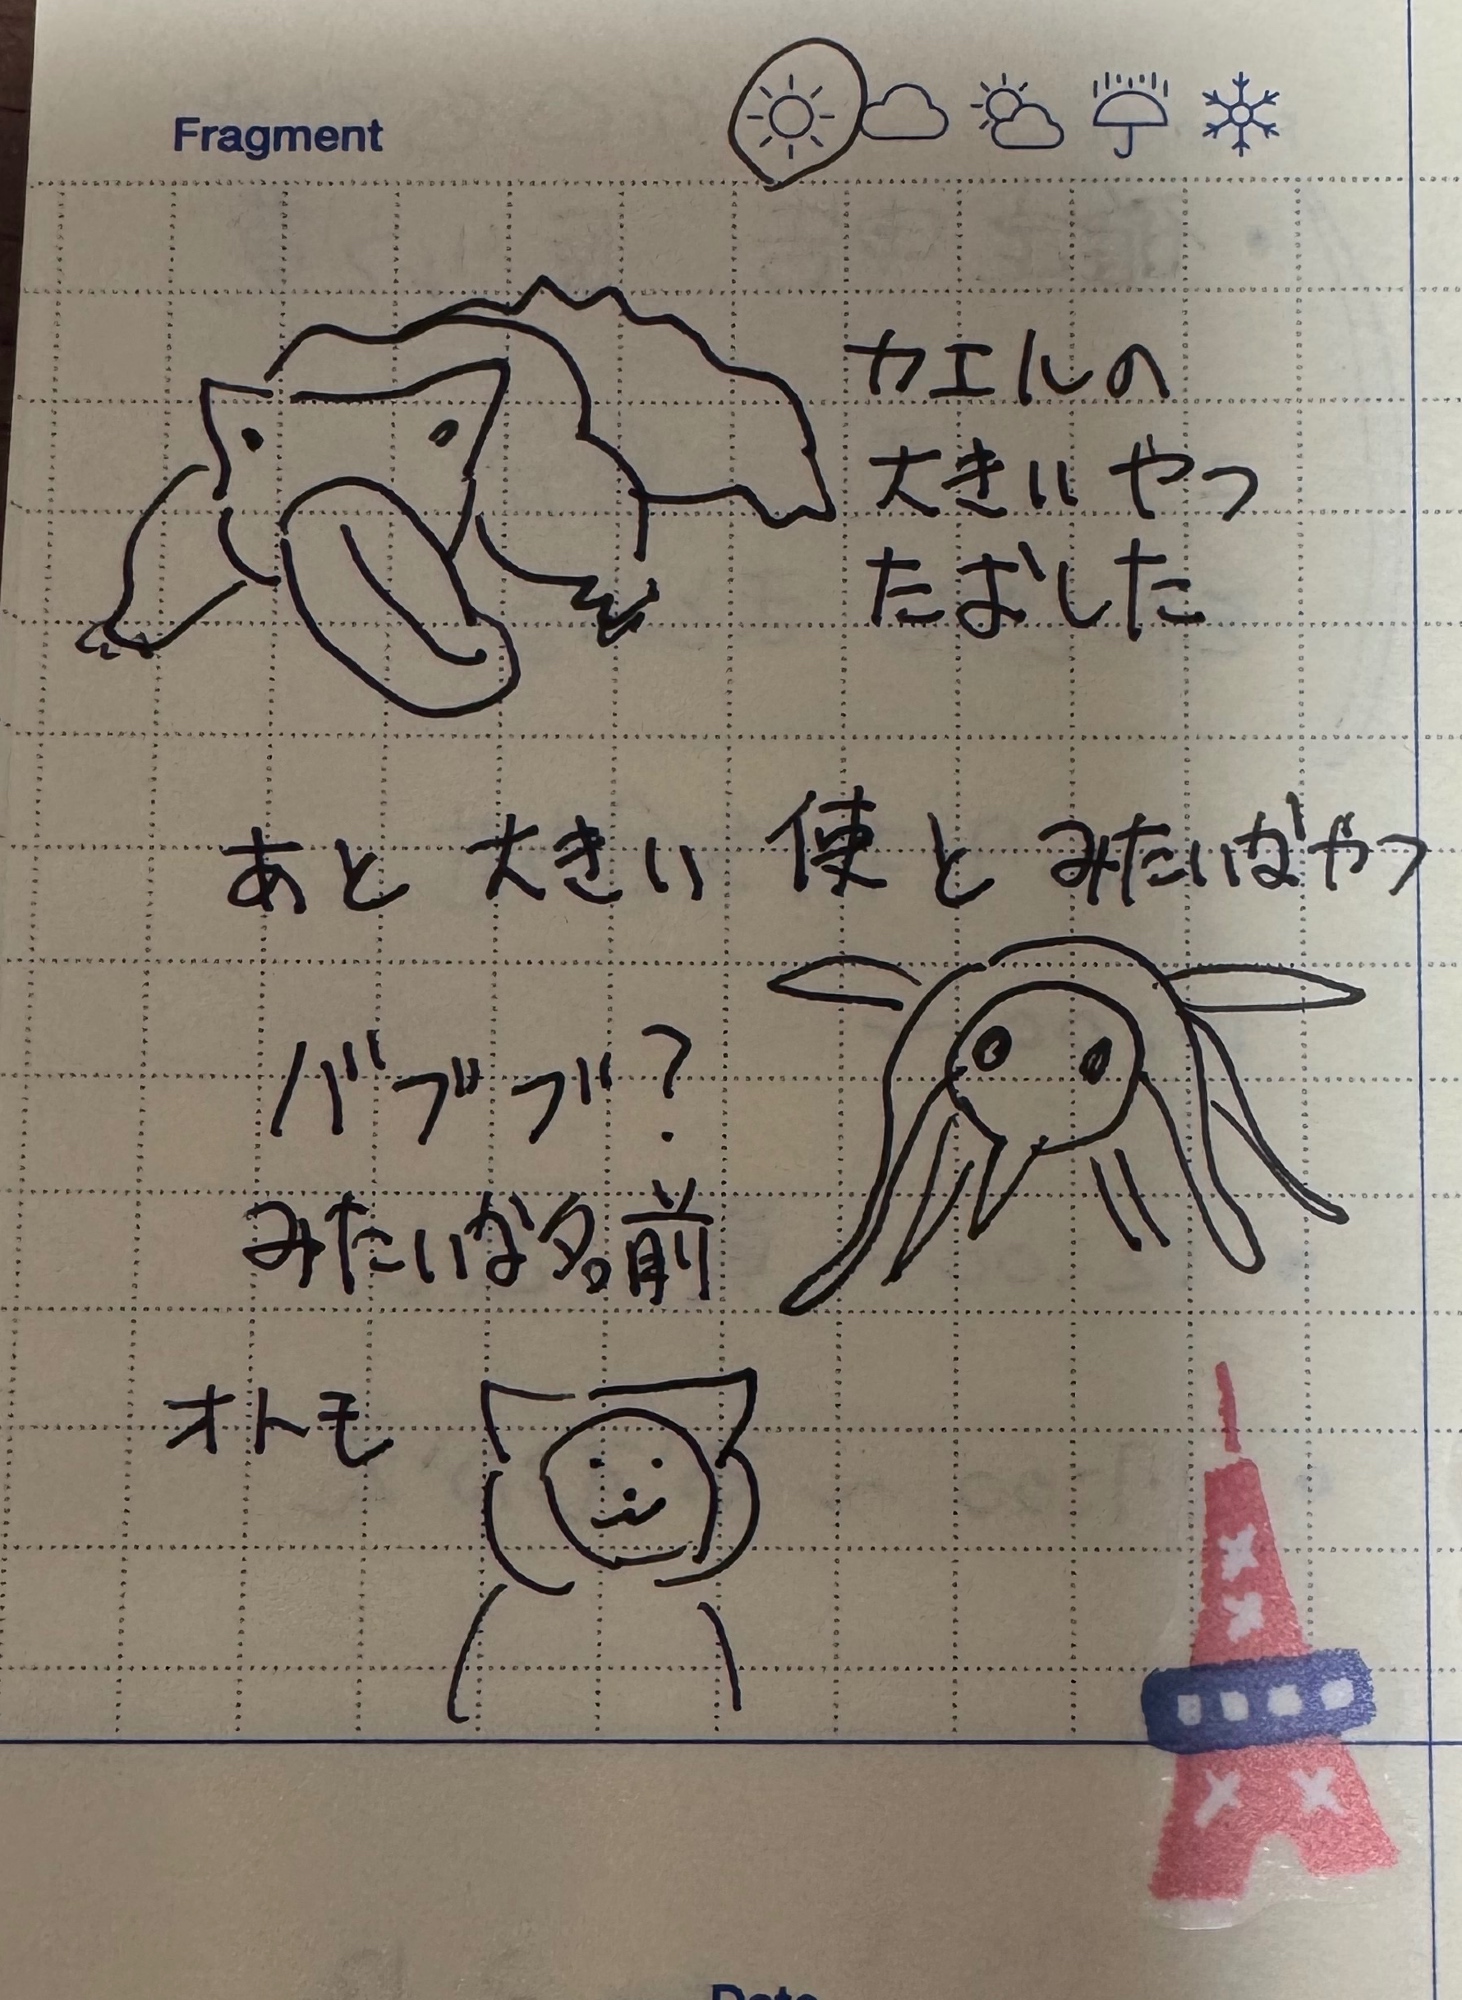 Fragment
カエルの
大きいやつ
たおした
あと 大きい 使と みたいなやつ
バブブ?
みたいな名前
オトモ